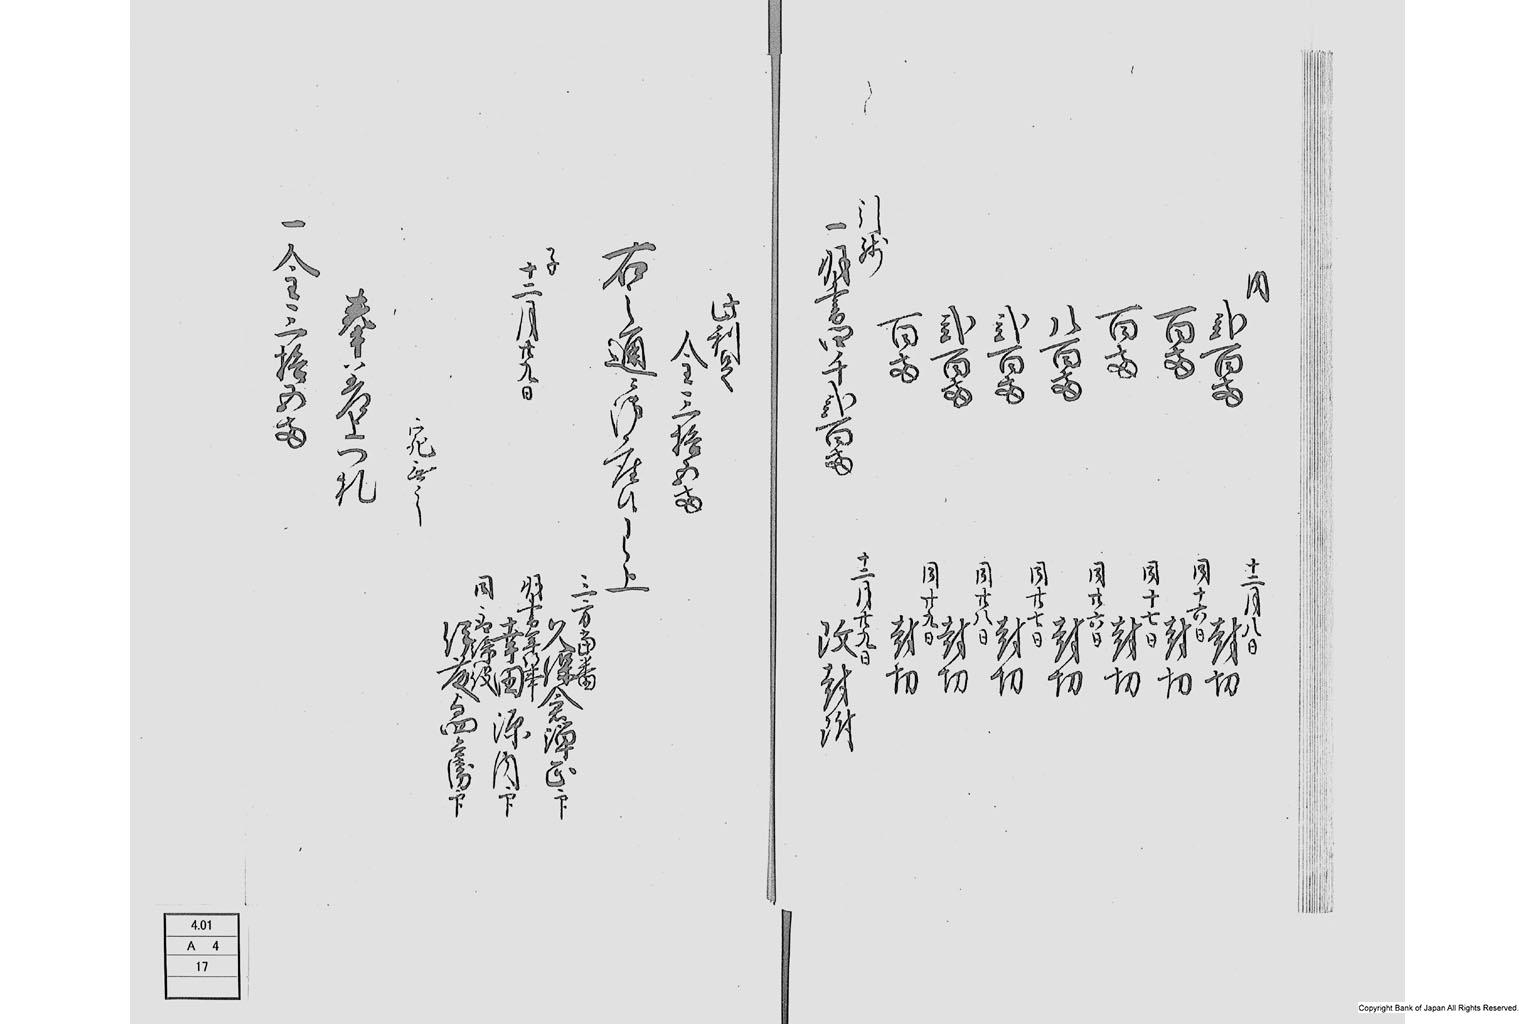 同
弐百両
十二月八日
封切
百両
同十六日
封切
百両
同十七日
封切
八百両
同廿六日
封切
弐百両
同廿七日
封切
弐百両
同廿八日
封切
百両
同廿九日
封切
引残
一 羽書四千弐百両
十二月廿九日
改封附
此利足
金三拾五両
右之通ニ御座候以上
子
十二月廿九日
三方当番
久保倉弾正印
羽書年行事
幸田源内印
同
宛無シ
奉差上一札
一 金三拾五両
4.01
A 4
17
Copyright Bank of Japan All Rights Reserved.